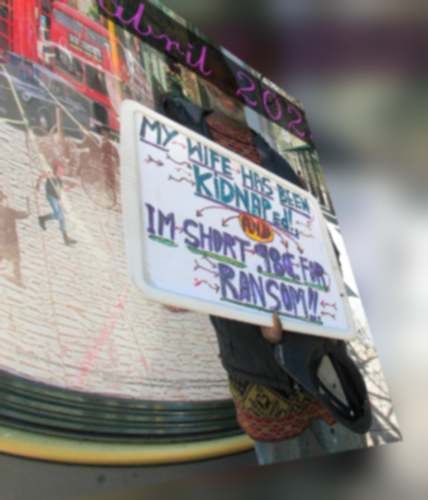 abril 202
MY WIFE HAS BEEN
KIDNAPed!!
AND
IM SHORT 98¢ FOR
RANSOM!!